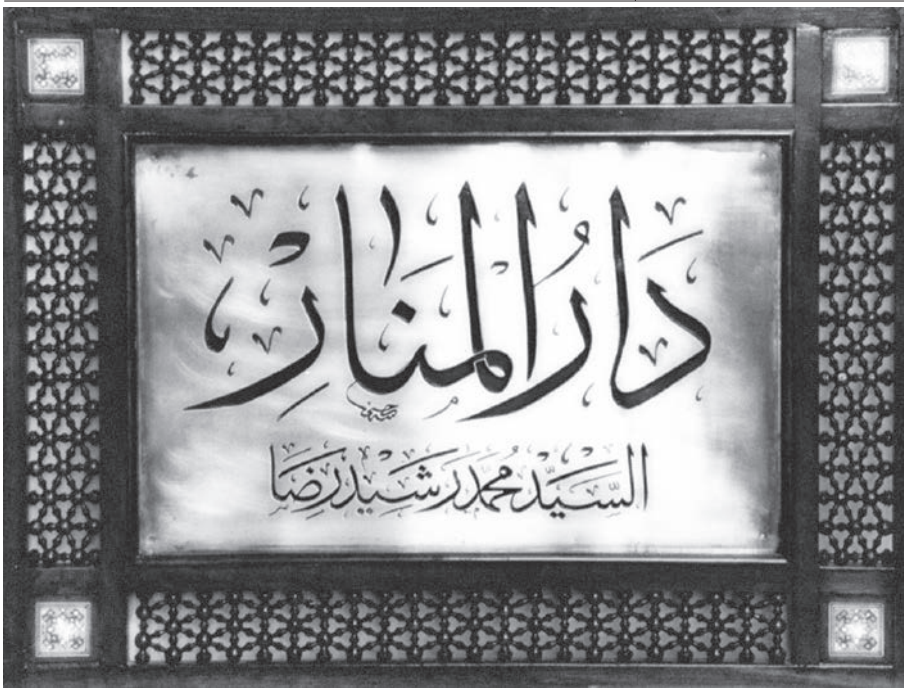 دَارُ المَنَارِ
السَّيِّد مُحَمَّد رَشِيد رِضَا